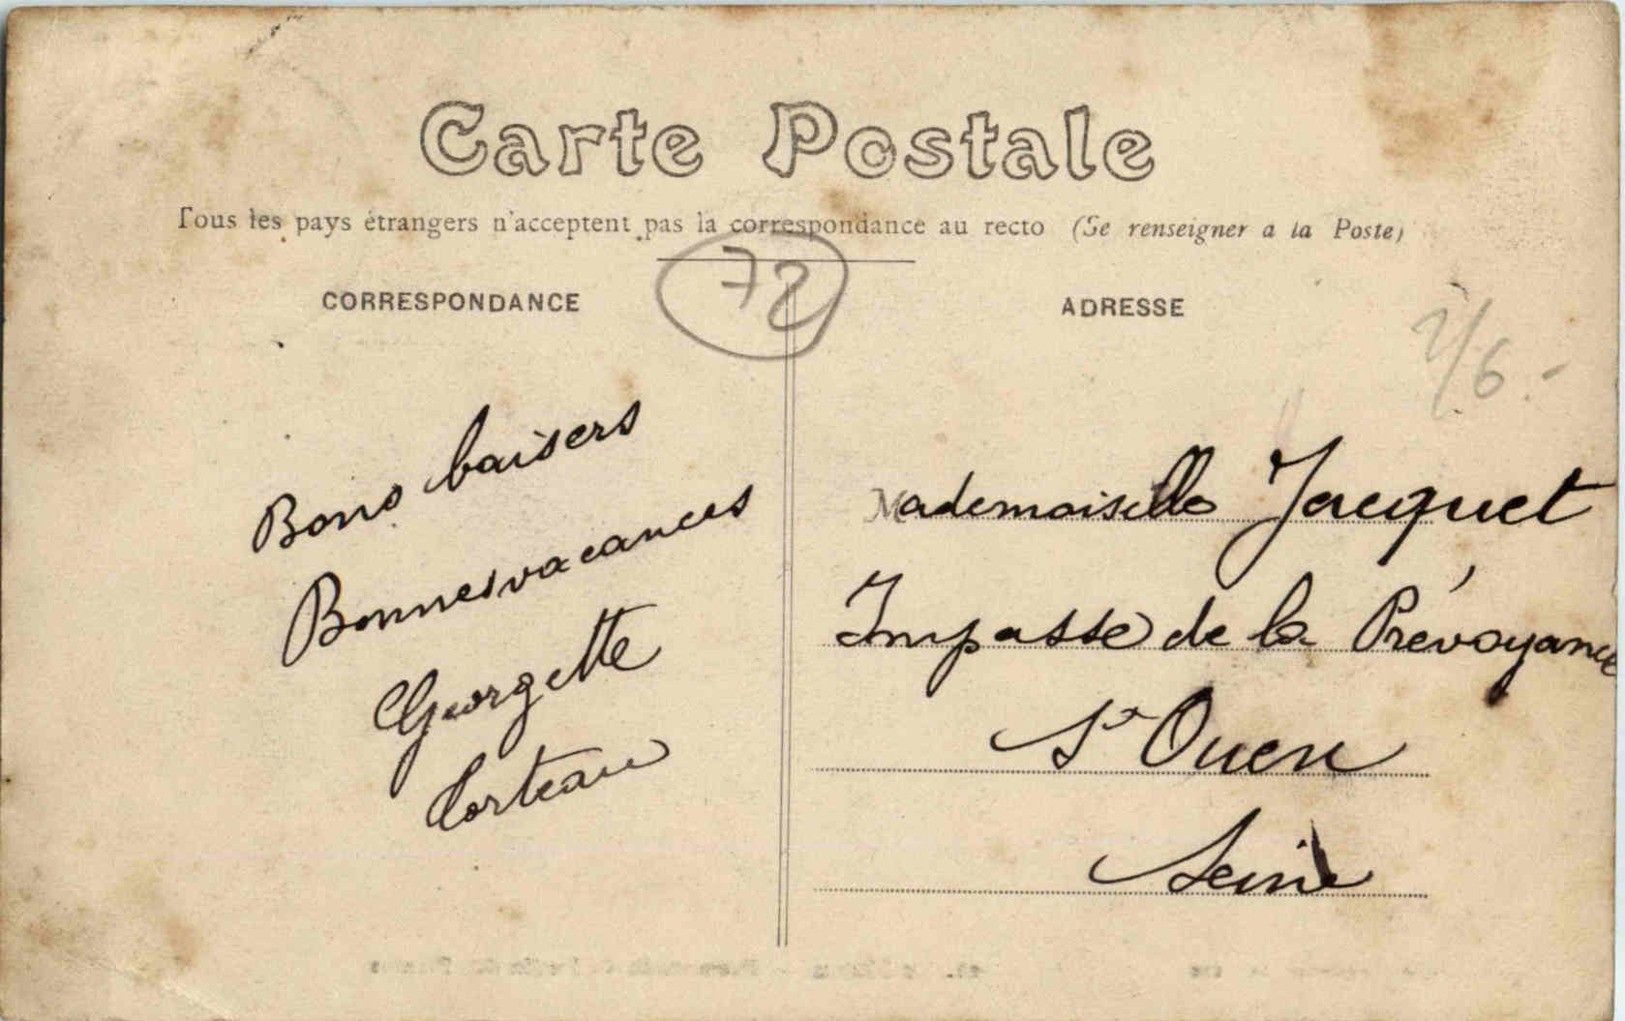 Carte Postale
Tous les pays étrangers n'acceptent pas la correspondance au recto (Se renseigner a la Poste)
72
CORRESPONDANCE
ADRESSE
2/6.-
Bons baisers
Bonnes vacances
Georgette
Corteau
Mademoiselle Jacquet
Impasse de la Prévoyance
St Ouen
Seine